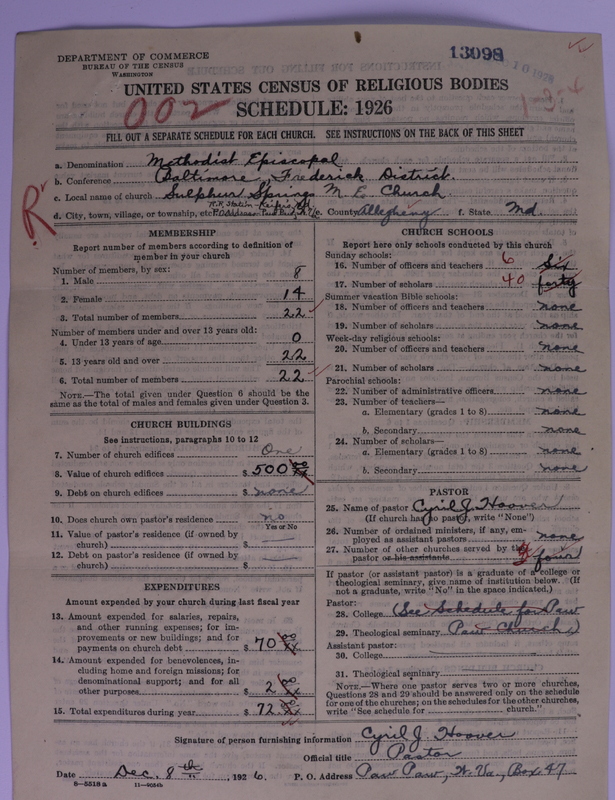 DEPARTMENT OF COMMERCE
BUREAU OF THE CENSUS
WASHINGTON
13098
UNITED STATES CENSUS OF RELIGIOUS BODIES
002
SCHEDULE: 1926
FILL OUT A SEPARATE SCHEDULE FOR EACH CHURCH. SEE INSTRUCTIONS ON THE BACK OF THIS SHEET
a. Denomination Methodist Episcopal
b. Conference Baltimore, Frederick District.
c. Local name of church Sulphur Springs M. E. Church
R.R. Station - Keifer's, Md.
d. City, town, village, or township, etc. P.O. Address - Paw Paw, W. Va. e. County Allegheny f. State Md.
R
MEMBERSHIP
Report number of members according to definition of
member in your church
Number of members, by sex:
1. Male 8
2. Female 14
3. Total number of members 22
Number of members under and over 13 years old:
4. Under 13 years of age 0
5. 13 years old and over 22
6. Total number of members 22
NOTE.—The total given under Question 6 should be the
same as the total of males and females given under Question 3.
CHURCH BUILDINGS
See instructions, paragraphs 10 to 12
7. Number of church edifices One
8. Value of church edifices $ 500 00/xx
9. Debt on church edifices $ none
10. Does church own pastor's residence no
Yes or No
11. Value of pastor's residence (if owned by
church) $
12. Debt on pastor's residence (if owned by
church) $
EXPENDITURES
Amount expended by your church during last fiscal year
13. Amount expended for salaries, repairs,
and other running expenses; for im-
provements or new buildings; and for
payments on church debt $ 70 00/xx
14. Amount expended for benevolences, in-
cluding home and foreign missions; for
denominational support; and for all
other purposes $ 2 00/xx
15. Total expenditures during year $ 72 00/xx
CHURCH SCHOOLS
Report here only schools conducted by this church
Sunday schools:
16. Number of officers and teachers 6 Six
17. Number of scholars 40 forty
Summer vacation Bible schools:
18. Number of officers and teachers none
19. Number of scholars none
Week-day religious schools:
20. Number of officers and teachers none
21. Number of scholars none
Parochial schools:
22. Number of administrative officers none
23. Number of teachers—
a. Elementary (grades 1 to 8) none
b. Secondary none
24. Number of scholars—
a. Elementary (grades 1 to 8) none
b. Secondary none
PASTOR
25. Name of pastor Cyril J. Hoover
(If church has no pastor, write "None")
26. Number of ordained ministers, if any, em-
ployed as assistant pastors none
27. Number of other churches served by the
pastor or his assistants four
If pastor (or assistant pastor) is a graduate of a college or
theological seminary, give name of institution below. (If
not a graduate, write "No" in the space indicated.)
Pastor:
28. College (See Schedule for Paw
29. Theological seminary Paw Church)
Assistant pastor:
30. College
31. Theological seminary
NOTE.—Where one pastor serves two or more churches,
Questions 28 and 29 should be answered only on the schedule
for one of the churches; on the schedules for the other churches,
write "See schedule for church."
Signature of person furnishing information Cyril J. Hoover
Official title Pastor
Date Dec. 8th, 1926. P. O. Address Paw Paw, W. Va., Box 47
8—5518a 11—9024b